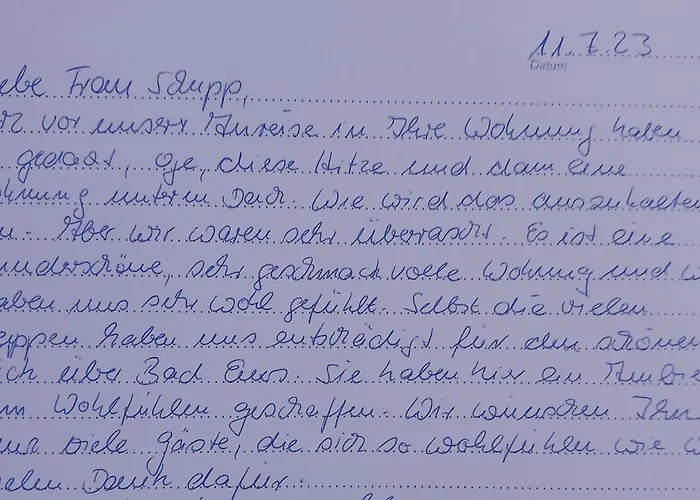 11.7.23
Datum
ebe Frau Schupp,
rz vor unserer Anreise in Ihre Wohnung haben
gedacht, oje, diese Hitze und dann eine
ohnung unterm Dach. Wie wird das auszuhalten
n. Aber wir waren sehr überrascht. Es ist eine
underschöne, sehr geschmackvolle Wohnung und w
aben uns sehr wohl gefühlt. Selbst die vielen
eppen haben uns entschädigt für den schönen
ick über Bad Ems. Sie haben hier ein Ambie
m Wohlfühlen geschaffen. Wir wünschen Ihn
nur viele Gäste, die sich so wohlfühlen wie w
elen Dank dafür.